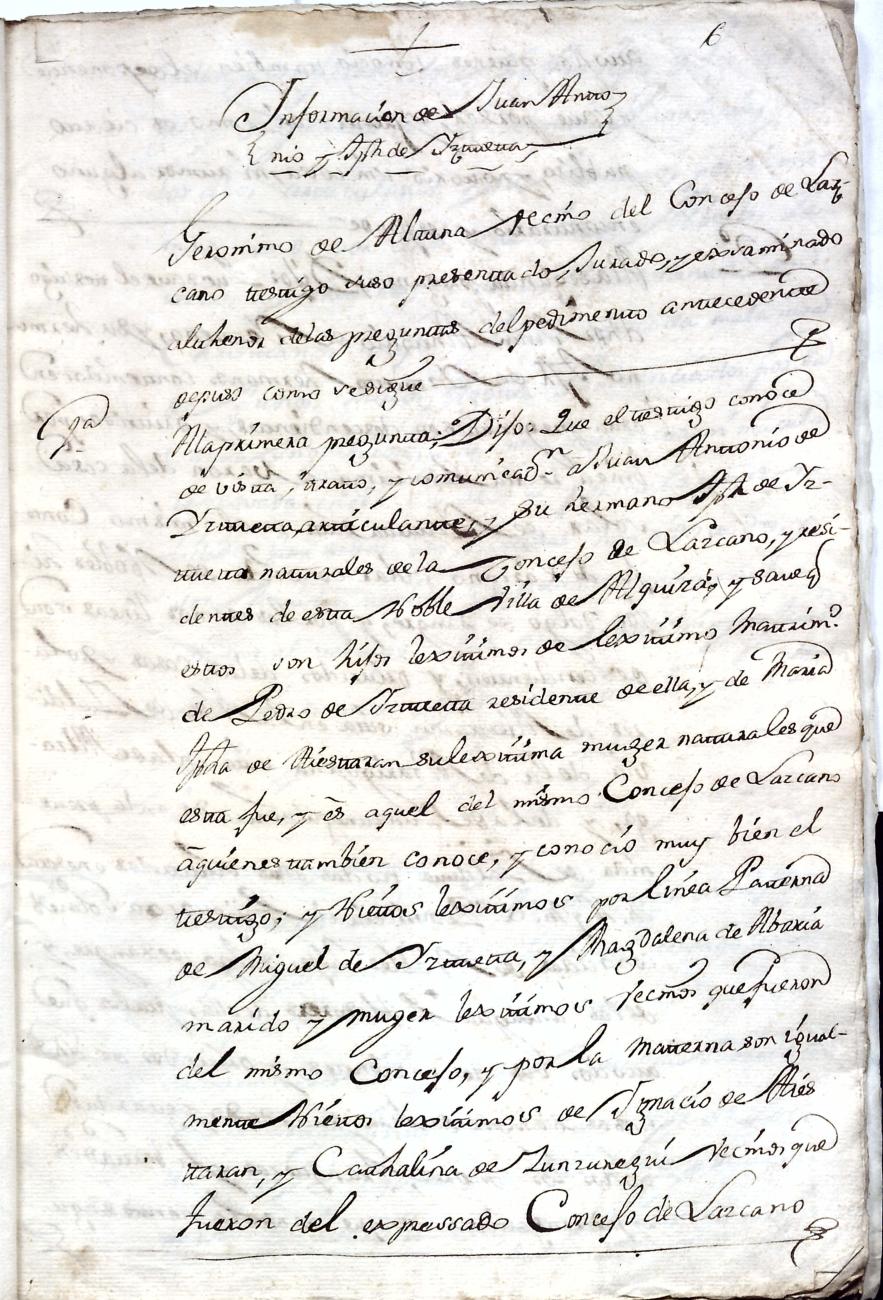 6
Informacion de Juan Anto
nio y Jph de Yztueta
Geronimo de Altuna vecino del Concejo de Laz
cano testigo suso presentado, Jurado, y examinado
al thenor de las preguntas del pedimento antecedente
depuso como se sigue
1ª
A la primera pregunta; Dijo: Que el testigo conoce
de vista, trato, y comunicaon. a Juan Antonio de
Yztueta articulante, y su hermano Jph de Yz-
tueta naturales de la Concejo de Lazcano, y resi-
dentes de esta Noble Villa de Alquiza, y save q
estos son hijos lexitimos de lexitimo Matrimo.
de Pedro de Yztueta residente de ella, y de Maria
Jpha de Aiestaran su lexitima muger naturales que
esta fue, y es aquel del mismo Concejo de Lazcano
a quienes tambien conoce, y conocio muy bien el
testigo; y Nietos lexitimos por linea Paterna
de Miguel de Yztueta, y Magdalena de Abaria
marido y muger lexitimos vecinos que fueron
del mismo Concejo, y por la Materna son igual-
mente Nietos lexitimos de Ygnacio de Aies
taran, y Cathalina de Zunzunegui vecinos que
fueron del expressado Concejo de Lazcano